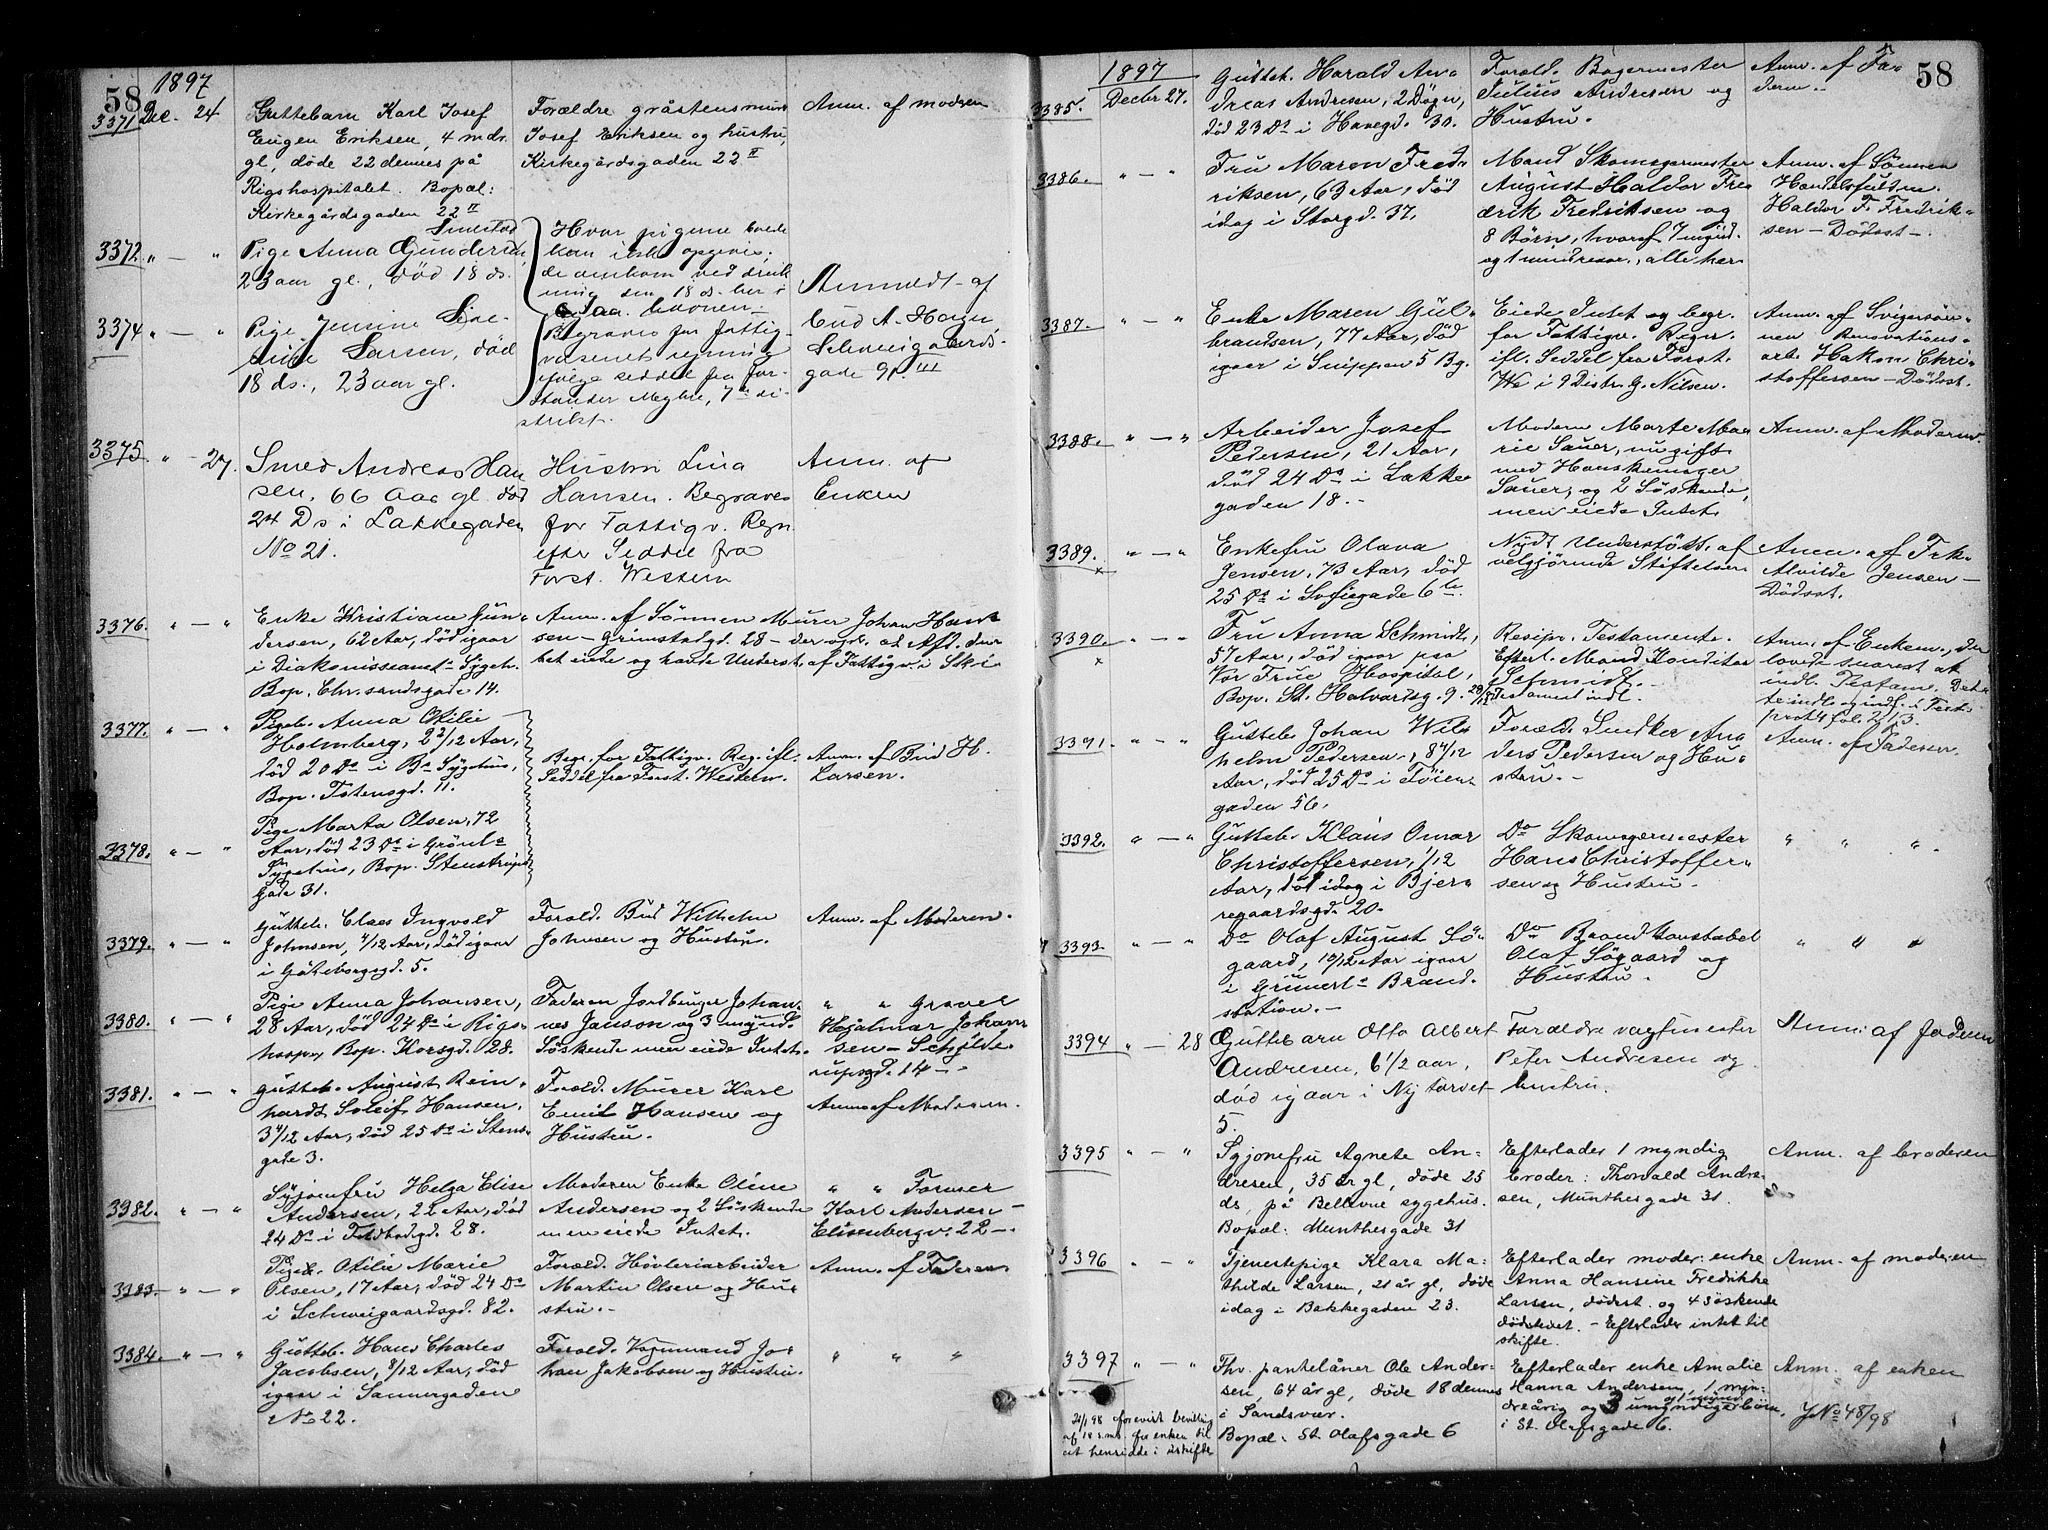 58
1897
3371 Dec. 24
Guttebarn Karl Josef
Eugen Eriksen, 4 mdr.
gl, døde 22 dennes på
Rigshospitalet. Bopæl:
Kirkegårdsgaden 22 II
Forældre gråstensmurer
Josef Eriksen og hustru,
Kirkegårdsgaden 22 II
Anm. af modren
3372 " — "
Pige Anna Gundersen,
23 aar gl., død 18 ds.
3374 " — "
Pige Jensine
Larsen, død
18 ds., 23 aar gl.
Hvor pigerne boede
kan ikke opgives;
de omkom ved
den 18 ds. her i
Begraves for Fattig-
væsenets regning
ifølge seddel fra for-
stander Myhre, 7de di-
strikt.
Anmeldt af
bud A. Hagen,
Schweigaards-
gade 91 III
3375 " — 27.
Smed Andreas Han
sen, 66 Aar gl. død
24 Ds i Lakkegaden
No 21.
Hustru Lina
Hansen. Begraves
for Fattigv. Regn.
efter Seddel fra
Forst. Western
Anm. af
Enken
3376. " — "
Enke Kristiane Gun-
dersen, 62 Aar, død igaar
i Diakonisseanst. Sygeh.
Bop. Chr.sandsgade 14.
Anm. af Sønnen Murer Johan Han-
sen — Grimstadgd. 28 — der opl. at Afd. Intet
eiede og havde Underst. af Fattigv. i Ski
3377. " — "
Pigeb. Anna Otilie
Holmberg, 2 2/12 Aar,
død 20 Ds i Bs Sygehus,
Bop. Totensgd. 11.
Begr. for Fattigv. Reg. ifl.
Seddel fra Forst. Western.
Anm. af Bud H.
Larsen.
3378. " — "
Pige Marta Olsen, 72
Aar, død 23 Ds i Grønl.s
Sygehus, Bop. Stenstrups
Gade 31.
3379. " — "
Gutteb. Claes Ingvold
Johnsen, 4/12 Aar, død igaar
i Gøteborggd. 5.
Foræld. Bud Wilhelm
Johnsen og Hustru.
Anm. af Moderen.
3380. " — "
Pige Anna Johansen,
28 Aar, død 24 Ds i Rigs-
hosp., Bop. Korsgd. 28.
Faderen Jordbruger Johan-
nes Janson og 3 mynd.
Søskende men eiede Intet.
" " Gravel
Hjalmar Johan
sen — Schylde-
rupsgd. 14 —
3381. " — "
Gutteb. August Rein-
hardt Soleif Hansen,
3 4/12 Aar, død 25 Ds i Stens-
gade 3.
Foræld. Murer Karl
Emil Hansen og
Hustru.
Anm. af Moderen.
3382. " — "
Syjomfru Helga Elise
Andersen, 22 Aar, død
24 Ds i Foldbodgd. 28.
Moderen Enke Oline
Andersen og 2 Søskende
men eiede Intet.
" " Formser
Karl Andersen —
Eisenbergv. 22 —.
3383. " — "
Pigeb. Otilie Marie
Olsen, 17 Aar, død 24 Ds
i Schweigaardsgd. 82.
Foræld. Høvleriarbeider
Martin Olsen og Hu-
stru. —
Anm. af Faderen
3384. " — "
Gutteb. Hans Charles
Jacobsen, 8/12 Aar, død
igaar i Sannergaden
No 22.
Foræld. Vognmand Jo-
han Jakobsen og Hustru.
" " "
58
1897
3385. Decbr 27.
Gutteb. Harald An-
dreas Andresen, 2 Døgn,
død 23 Ds i Havegd. 30.
Foræld. Bagermester
Julius Andresen og
Hustru.
Anm. af Fa-
deren.
3386. " — "
Fru Maren Fred-
riksen, 63 Aar, død
idag i Storgd. 37.
Mand Skomagermester
August Haldor Fre-
drik Fredriksen og
8 Børn, hvoraf 7 mynd.
og 1 mindreaar., alle her
Anm. af Sønnen
Handelsfuldm.
Haldor F. Fredrik-
sen — Dødsst —.
3387. " — "
Enke Maren Gul-
brandsen, 77 Aar, død
igaar i Snippen 5 Bg.
Eiede Intet og begr.
for Fattigv. Regn.
ifl. Seddel fra Forst.
We i 9 Distr. G. Nilsen.
Anm. af Svigersøn-
nen Renovations-
arb. Hakon Chri-
stoffersen — Dødsst.
3388. " — "
Arbeider Josef
Pedersen, 21 Aar,
død 24 Ds i Lakke-
gaden 18. —
Moderen Marte Ma-
rie Sauer, nu gift
med Hanskemager
Sauer, og 2 Søskende,
men eiede Intet
Anm. af Moderen
3389. " — "
x
Enkefru Olava
Jensen, 73 Aar, død
25 Ds i Sofiegade 6 b.
Nydt Understøtt. af
velgjørende Stiftelser
Anm. af Frk.
Alvilde Jensen —
Dødsst.
3390. " — "
x
Fru Anna Schmidt,
57 Aar, død igaar paa
Vor Frue Hospital,
Bop. St. Halvardsg. 9.
Resipr. Testamente.
Efterl. Mand Konditor
Schmidt.
Testament indl.
Anm. af Enkem., der
lovede snarest at
indl. Testam.
prot 4 fol. 213.
3391. " — "
Gutteb. Johan Wil-
helm Pedersen, 8 4/12
Aar, død 25 Ds i Tøien-
gaden 56.
Foræld. Snidker An-
ders Pedersen og Hu-
stru. —
Anm. af Faderen.
3392. " — "
Gutteb. Klaus Omar
Christoffersen, 1/12
Aar, død idag i Bjer-
regaardsgd. 20.
Do Skomagermester
Hans Christoffer-
sen og Hustru.
" " ".
3393. " — "
Do Olaf August Sø-
gaard, 10/12 Aar igaar
i Grünerl.s Brand-
station. —
Do Brandkonstabel
Olaf Søgaard og
Hustru.
" " "
3394 " — 28
Guttebarn Otto Albert
Andresen, 6 1/2 aar,
død igaar i Nytorvet
5.
Forældre vagtmester
Peter Andresen og
hustru.
Anm. af faderen
3395 " — "
Syjomfru Agnete An-
dresen, 35 år gl, døde 25
ds, på Bellevue sygehus.
Bopæl: Munthesgade 31
Efterlader 1 myndig
broder: Thorvald Andre-
sen, Munthesgade 31.
Anm. af broderen
3396 " — "
Tjenestepige Klara Ma-
thilde Larsen, 21 år gl, døde
idag i Bakkegaden 23.
Efterlader moder: enke
Anna Hansine Fredrikke
Larsen, dødsst. og 4 søskende
dødsstedet. — Efterlader intet til
skifte.
Anm. af moderen
3397 " — "
Fhv. pantelåner Ole Ander-
sen, 64 år gl, døde 18 dennes
i Sandsvær.
Bopæl: St. Olafsgade 6
Efterlader enke Amalie
Hanna Andersen, 1 myn-
dreårig og 3 umyndige børn,
i St. Olafsgade 6.
Anm. af enken
J No 48/98
21/1 98 forevist bevilling
af 18 s.m. for enken til
at hensidde i uskifte